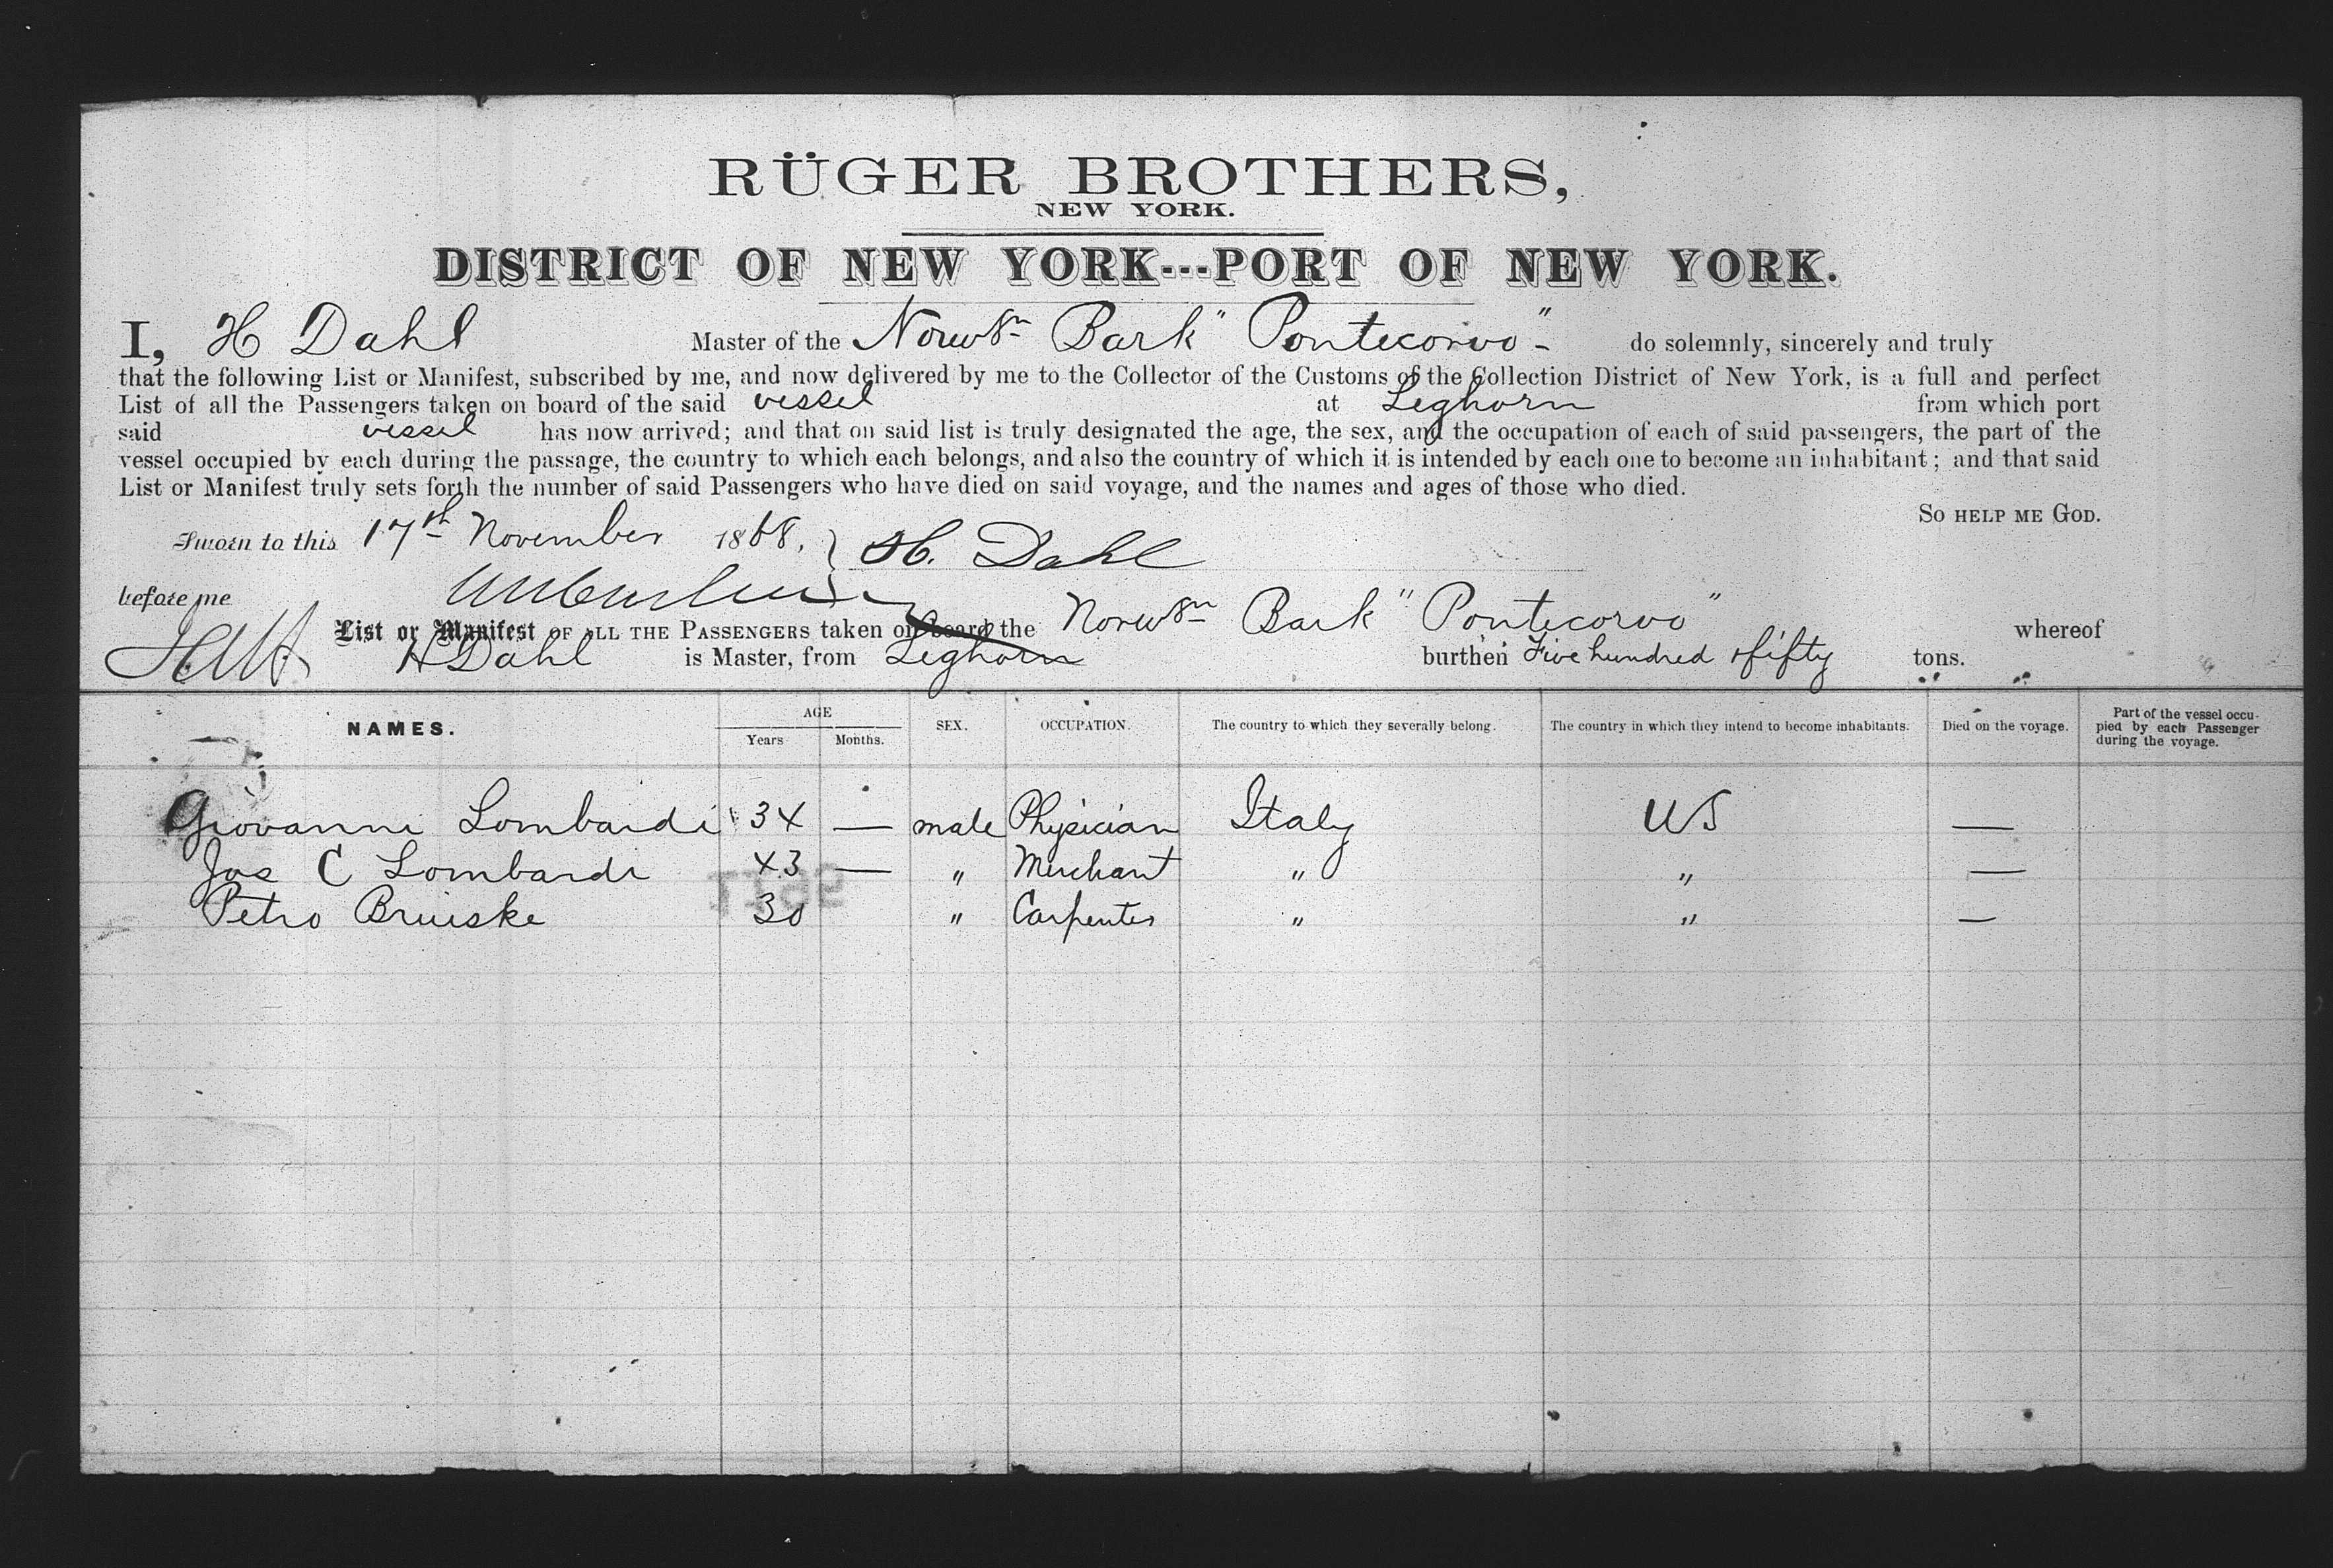 RÜGER BROTHERS,
NEW YORK.
DISTRICT OF NEW YORK---PORT OF NEW YORK.
I, H Dahl Master of the Norwgn Bark "Pontecorvo" do solemnly, sincerely and truly
that the following List or Manifest, subscribed by me, and now delivered by me to the Collector of the Customs of the Collection District of New York, is a full and perfect
List of all the Passengers taken on board of the said vessel at Leghorn from which port
said vessel has now arrived; and that on said list is truly designated the age, the sex, and the occupation of each of said passengers, the part of the
vessel occupied by each during the passage, the country to which each belongs, and also the country of which it is intended by each one to become an inhabitant; and that said
List or Manifest truly sets forth the number of said Passengers who have died on said voyage, and the names and ages of those who died.
SO HELP ME GOD.
Sworn to this 17th November 1868. } H. Dahl
before me
List or Manifest OF ALL THE PASSENGERS taken on board the Norwgn Bark "Pontecorvo" whereof
H Dahl is Master, from Leghorn burthen Five hundred & fifty tons.
NAMES. AGE Years Months. SEX. OCCUPATION. The country to which they severally belong. The country in which they intend to become inhabitants. Died on the voyage. Part of the vessel occupied by each Passenger during the voyage.
Giovanni Lombardi 34 — male Physician Italy US —
Jos C Lombardi 43 — " Merchant " " —
Petro Bruiske 30 " Carpenter " " —